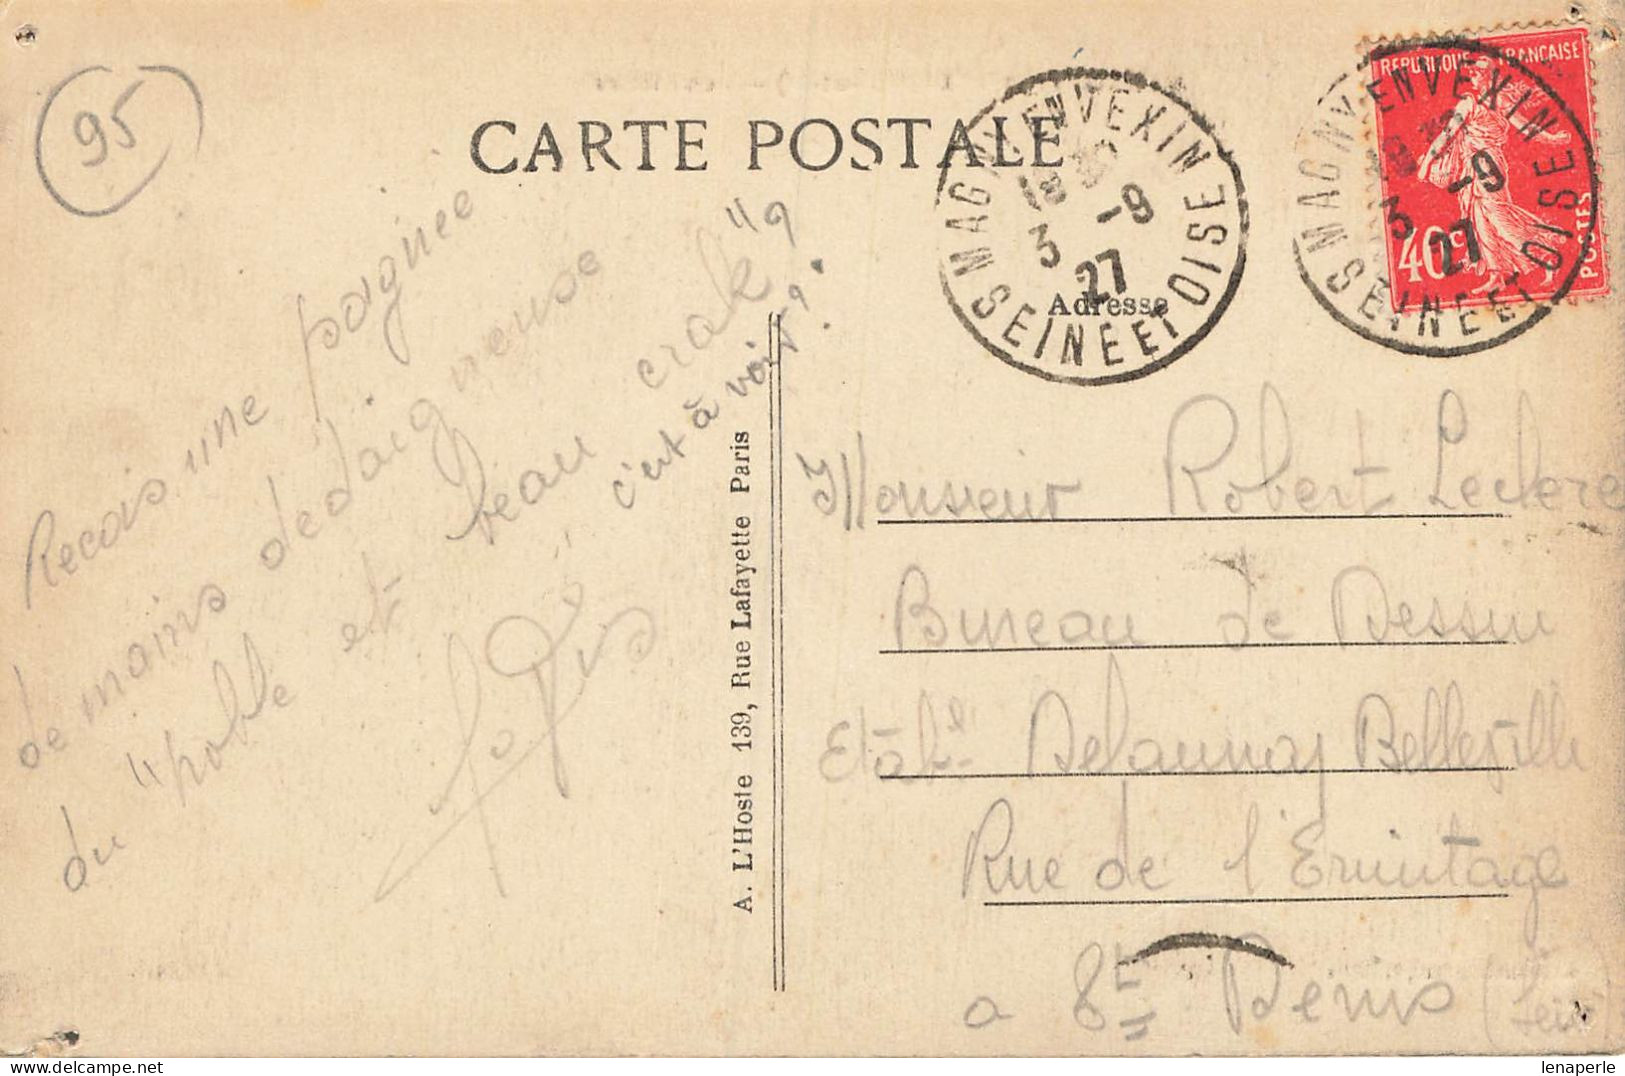 95
CARTE POSTALE
MAGNY EN VEXIN
18 30
3 -9
27
SEINE ET OISE
REPUBLIQUE FRANÇAISE
40c
POSTES
MAGNY EN VEXIN
18 30
3 -9
27
SEINE ET OISE
Adresse
Recois une poignee
de mains dédaigneuse
du "noble et beau crak"
c'est à voir
A. L'Hoste 139, Rue Lafayette Paris
Monsieur Robert Leclere
Bureau de Dessin
Etabl Delaunay Belleville
Rue de l'Ermitage
a St Denis (Seine)
lenaperle